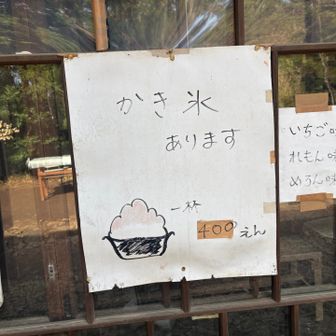 かき氷
あります
一杯
400えん
いちご
れもん味
めろん味